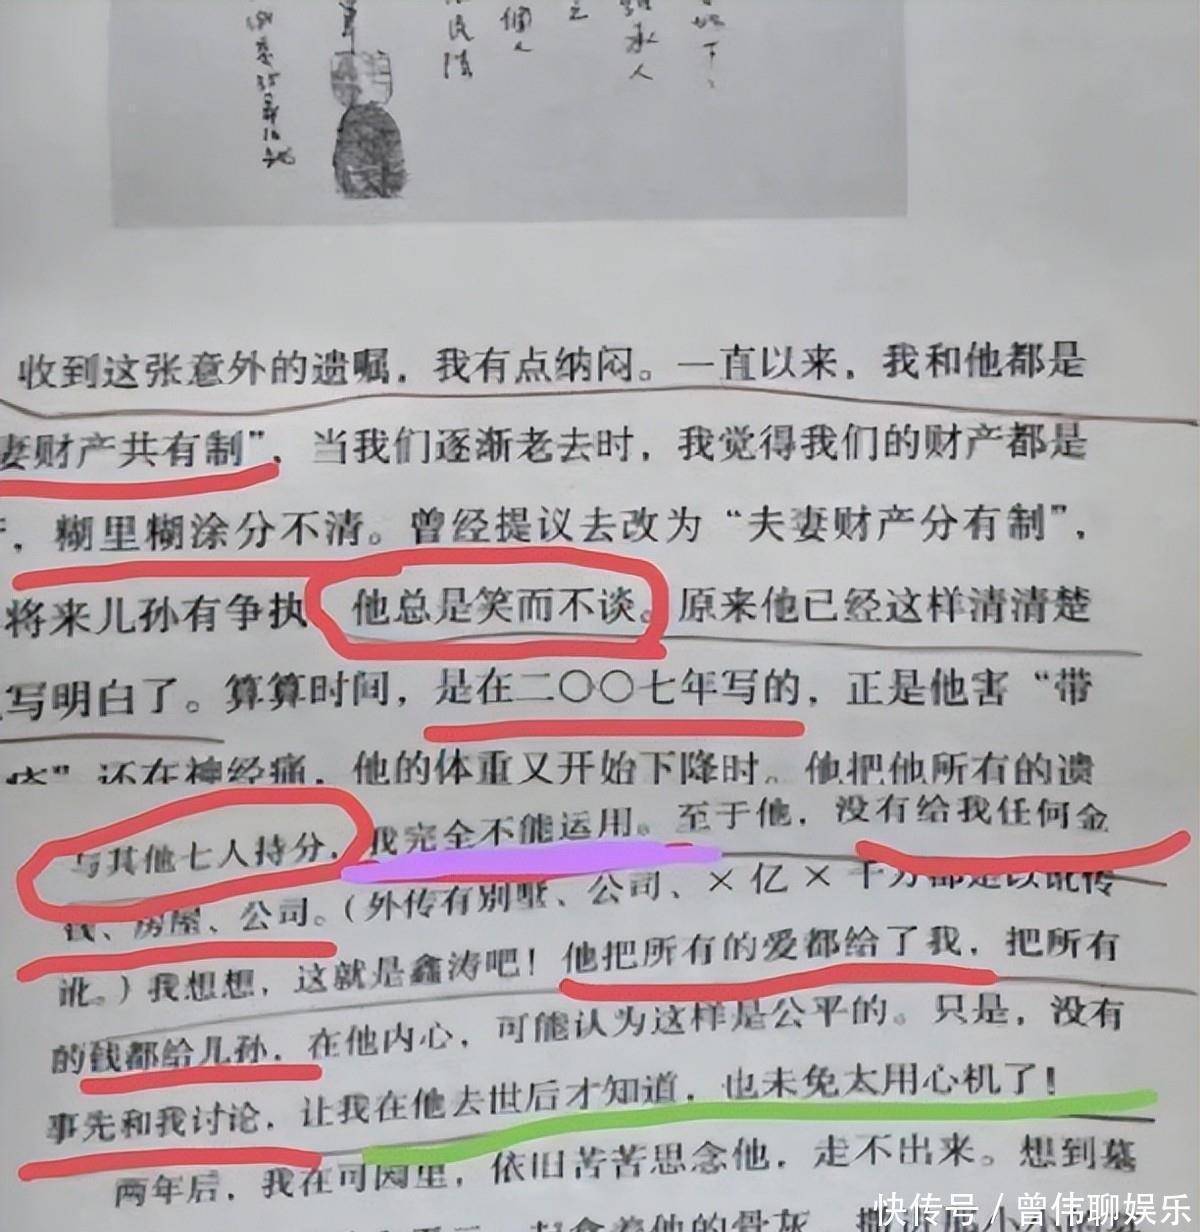 如下：
继承人
个人
收到这张意外的遗嘱，我有点纳闷。一直以来，我和他都是
妻财产共有制”，当我们逐渐老去时，我觉得我们的财产都是
，糊里糊涂分不清。曾经提议去改为“夫妻财产分有制”，
将来儿孙有争执 他总是笑而不谈。原来他已经这样清清楚
写明白了。算算时间，是在二〇〇七年写的，正是他害“带
还在神经痛，他的体重又开始下降时。他把他所有的遗
与其他七人持分，我完全不能运用。至于他，没有给我任何金
钱、房屋、公司。（外传有别墅、公司、×亿×千万都是以讹传
讹。）我想想，这就是鑫涛吧！他把所有的爱都给了我，把所有
的钱都给儿孙，在他内心，可能认为这样是公平的。只是，没有
事先和我讨论，让我在他去世后才知道，也未免太用心机了！
两年后，我在可园里，依旧苦苦思念他，走不出来。想到墓
着他的骨灰
快传号／曾伟聊娱乐